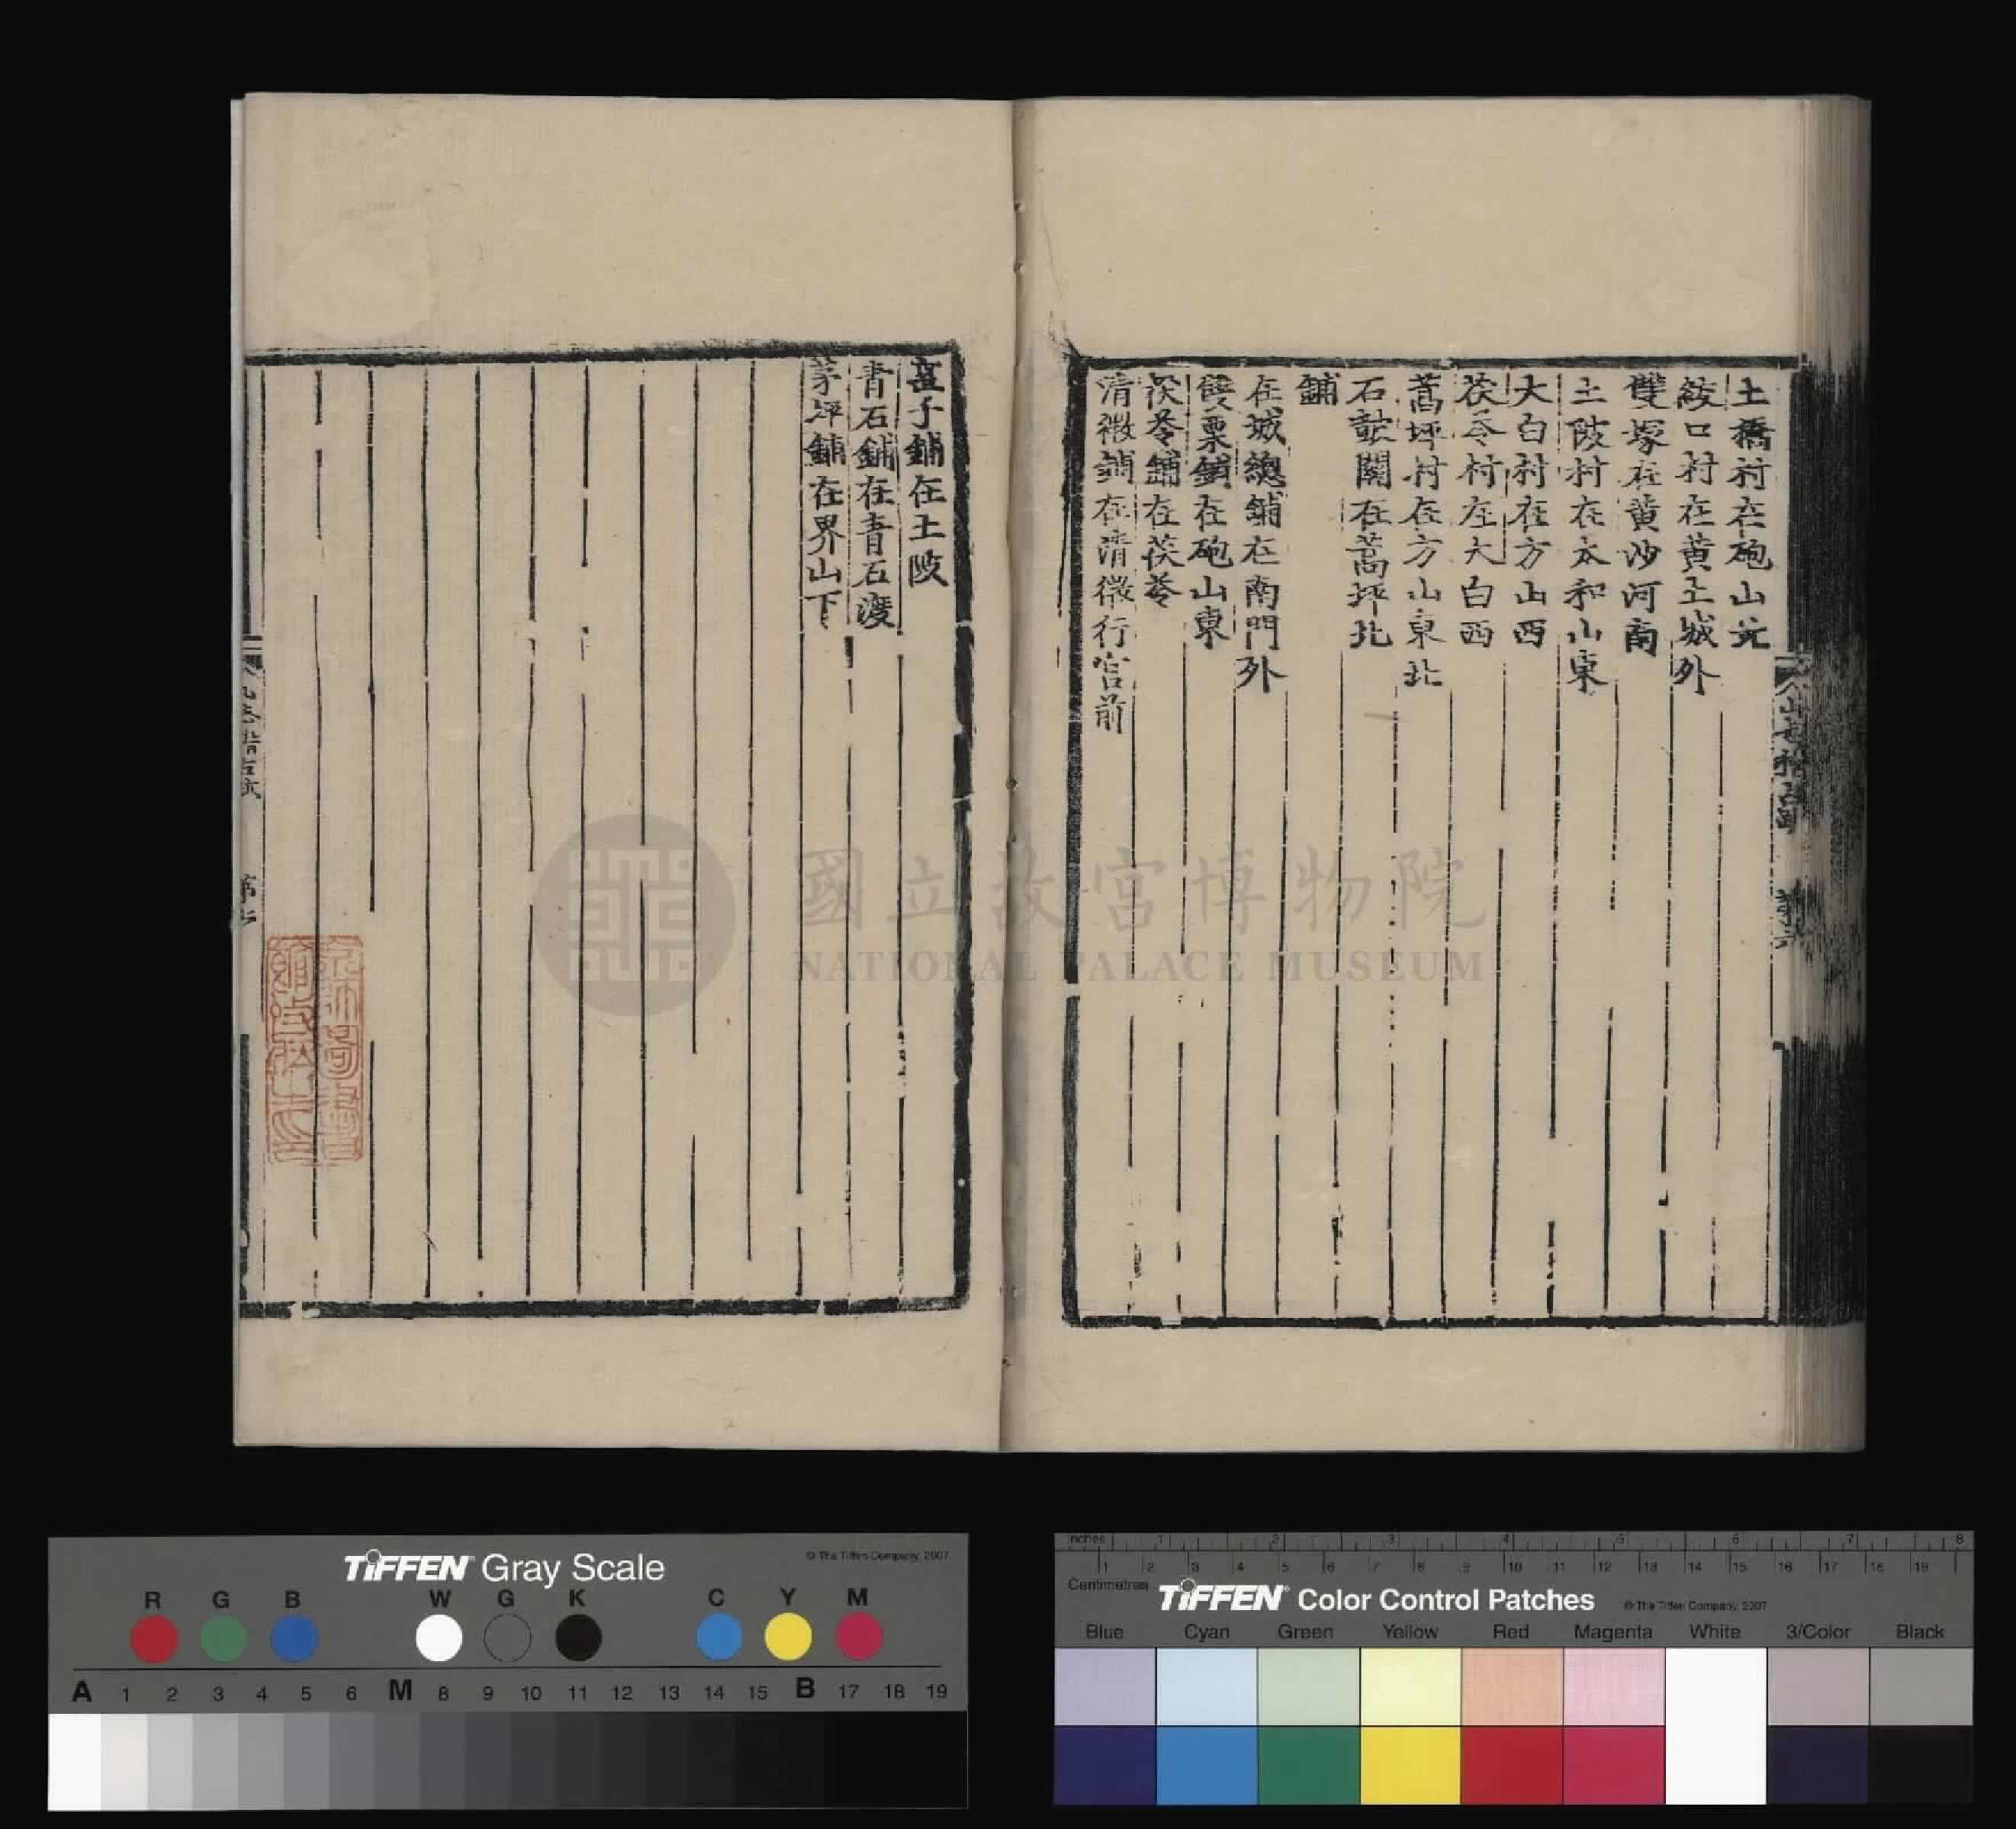 土橋村在砲山北
綾口村在黄土城外
雙塚在黄沙河南
土陂村在太和山東
大白村在方山西
茯苓村在大白西
蒿坪村在方山東北
石鼓關在蒿坪北
鋪
在城總鋪在南門外
雙栗鋪在砲山東
茯苓鋪在茯苓
清微鋪在清微行宮前
子鋪在土陂
青石鋪在青石渡
茅坪鋪在界山下
國立故宮博物院
NATIONAL PALACE MUSEUM
TIFFEN Gray Scale
© The Tiffen Company, 2007
R G B W G K C Y M
A 1 2 3 4 5 6 M 8 9 10 11 12 13 14 15 B 17 18 19
Inches 1 2 3 4 5 6 7 8
1 2 3 4 5 6 7 8 9 10 11 12 13 14 15 16 17 18 19
Centimetres
TIFFEN Color Control Patches
© The Tiffen Company, 2007
Blue Cyan Green Yellow Red Magenta White 3/Color Black